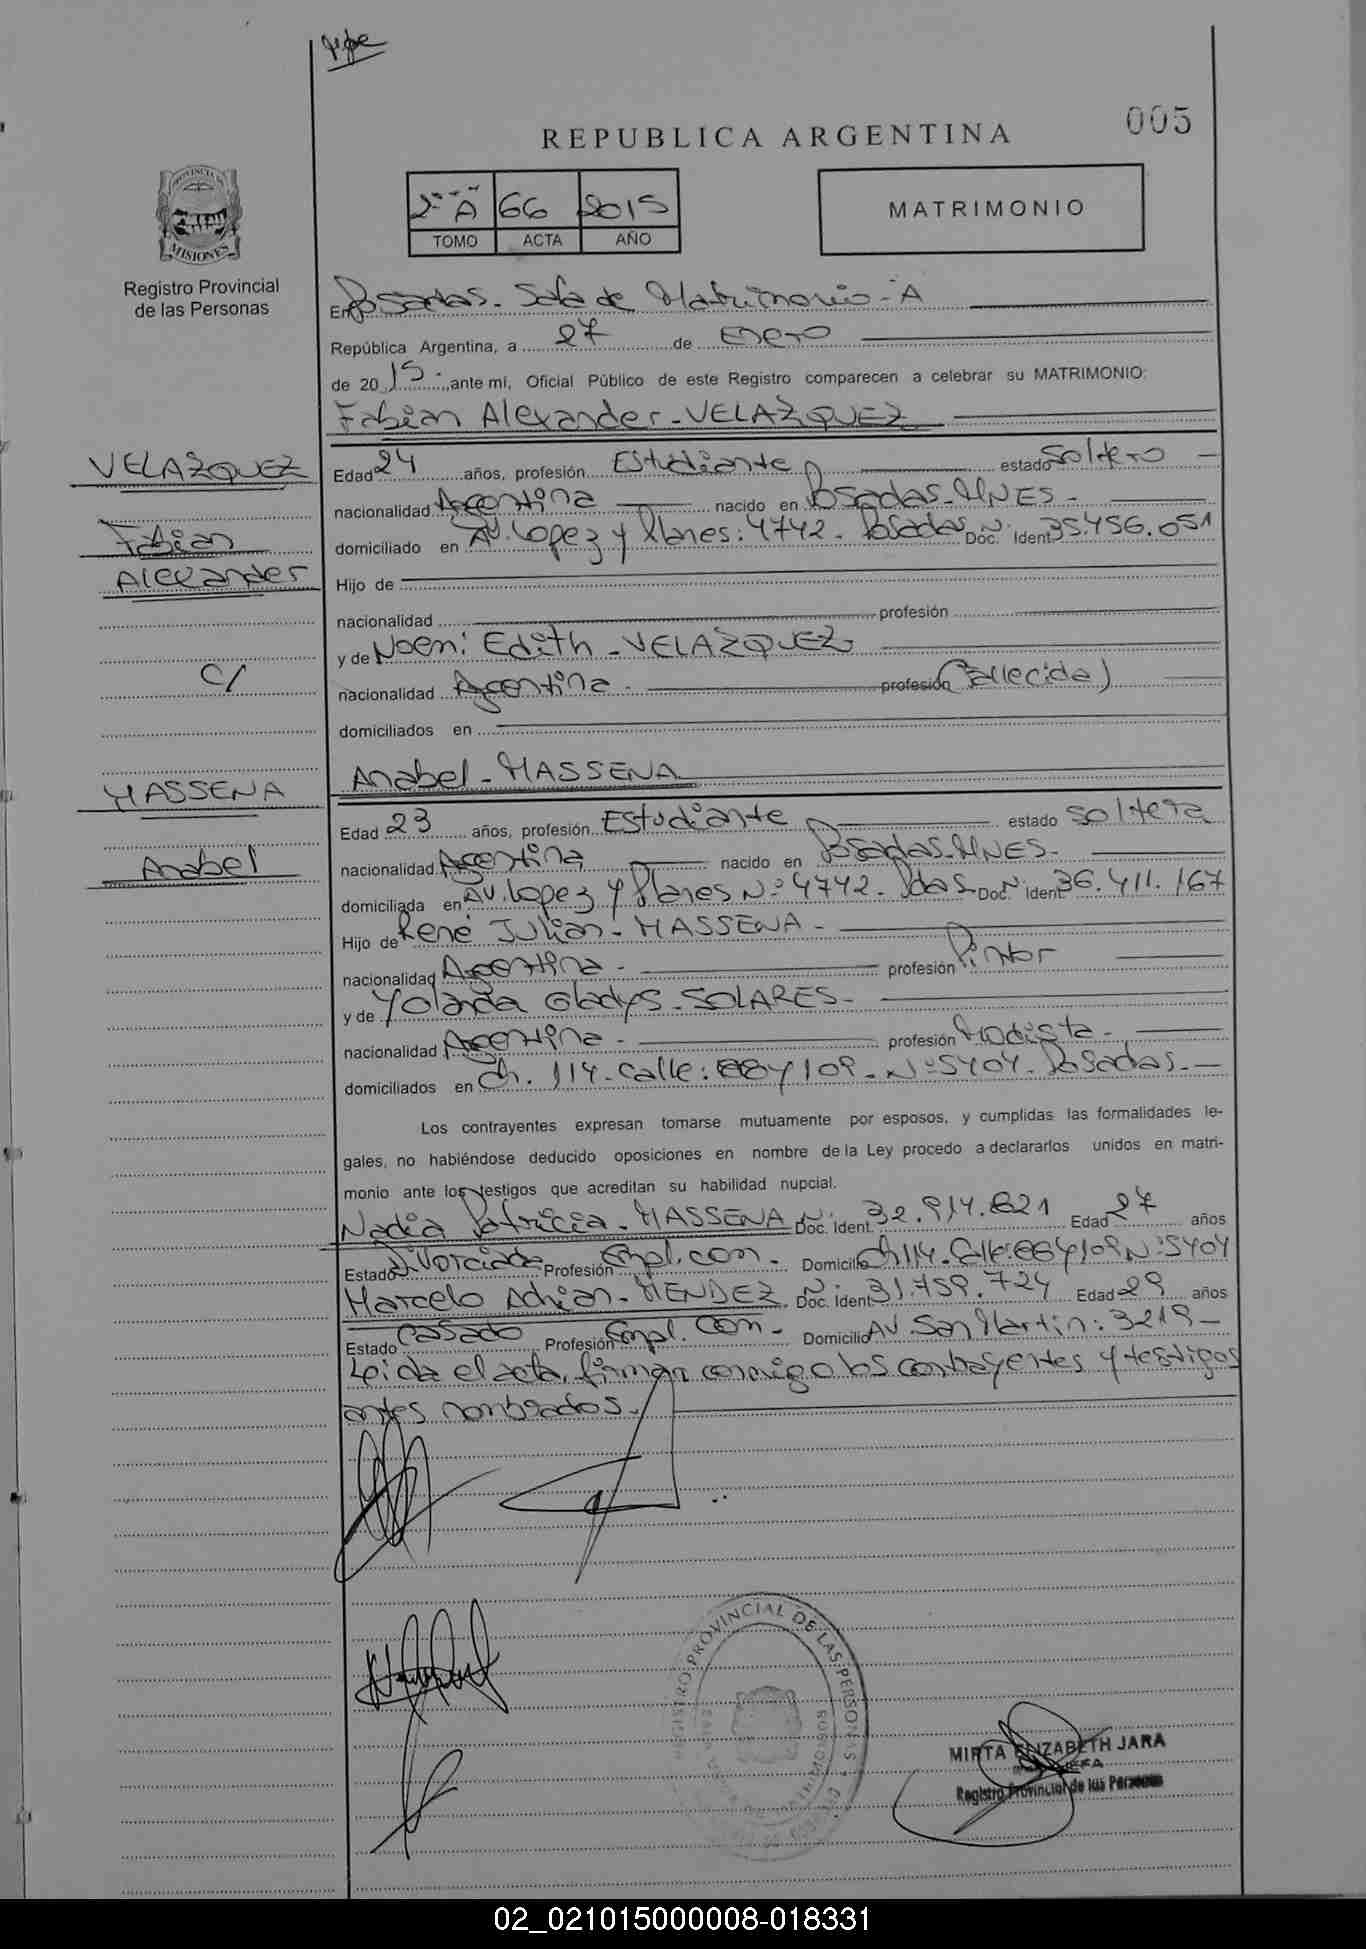 005
REPUBLICA ARGENTINA
PROVINCIA DE
MISIONES
Registro Provincial
de las Personas
2º "A" 66 2015
TOMO ACTA AÑO
MATRIMONIO
En Posadas - Sala de Matrimonio - A
República Argentina, a 27 de Enero
de 2015.-, ante mí, Oficial Público de este Registro comparecen a celebrar su MATRIMONIO:
Fabian Alexander - VELAZQUEZ
VELAZQUEZ
Fabian
Alexander
C/
MASSENA
Anabel
Edad 24 años, profesión Estudiante estado Soltero -
nacionalidad Argentina nacido en Posadas - MNES -
domiciliado en Av. Lopez y Planes: 4742 - Posadas Doc. Ident. Nº: 35.456.051
Hijo de
nacionalidad profesión
y de Noemi Edith - VELAZQUEZ
nacionalidad Argentina - profesión (Fallecida)
domiciliados en
Anabel - MASSENA
Edad 23 años, profesión Estudiante estado soltera
nacionalidad Argentina nacido en Posadas - MNES -
domiciliada en Av. Lopez y Planes Nº 4742 - Pdas - Doc. Ident. Nº: 36.411.167
Hijo de René Julian - MASSENA -
nacionalidad Argentina - profesión Pintor
y de Yolanda Gladys - SOLARES -
nacionalidad Argentina - profesión Modista -
domiciliados en Ch. 114 - Calle: 109 - Nº 5404 - Posadas -
Los contrayentes expresan tomarse mutuamente por esposos, y cumplidas las formalidades le-
gales, no habiéndose deducido oposiciones en nombre de la Ley procedo a declararlos unidos en matri-
monio ante los testigos que acreditan su habilidad nupcial.
Nadia Patricia - MASSENA Doc. Ident. Nº: 32.914.821 Edad 27 años
Estado Divorciada Profesión Empl. Com - Domicilio Ch 114 - Calle: 109 Nº: 5404
Marcelo Adrian - MENDEZ Doc. Ident. Nº: 31.759.724 Edad 29 años
Estado Casado Profesión Empl. Com - Domicilio Av. San Martin: 3219 -
Leida el acta, firman conmigo los contrayentes y testigos
antes nombrados.-
REGISTRO PROVINCIAL DE LAS PERSONAS
MIRTA ELIZABETH JARA
JEFA
Registro Provincial de las Personas
02_021015000008-018331